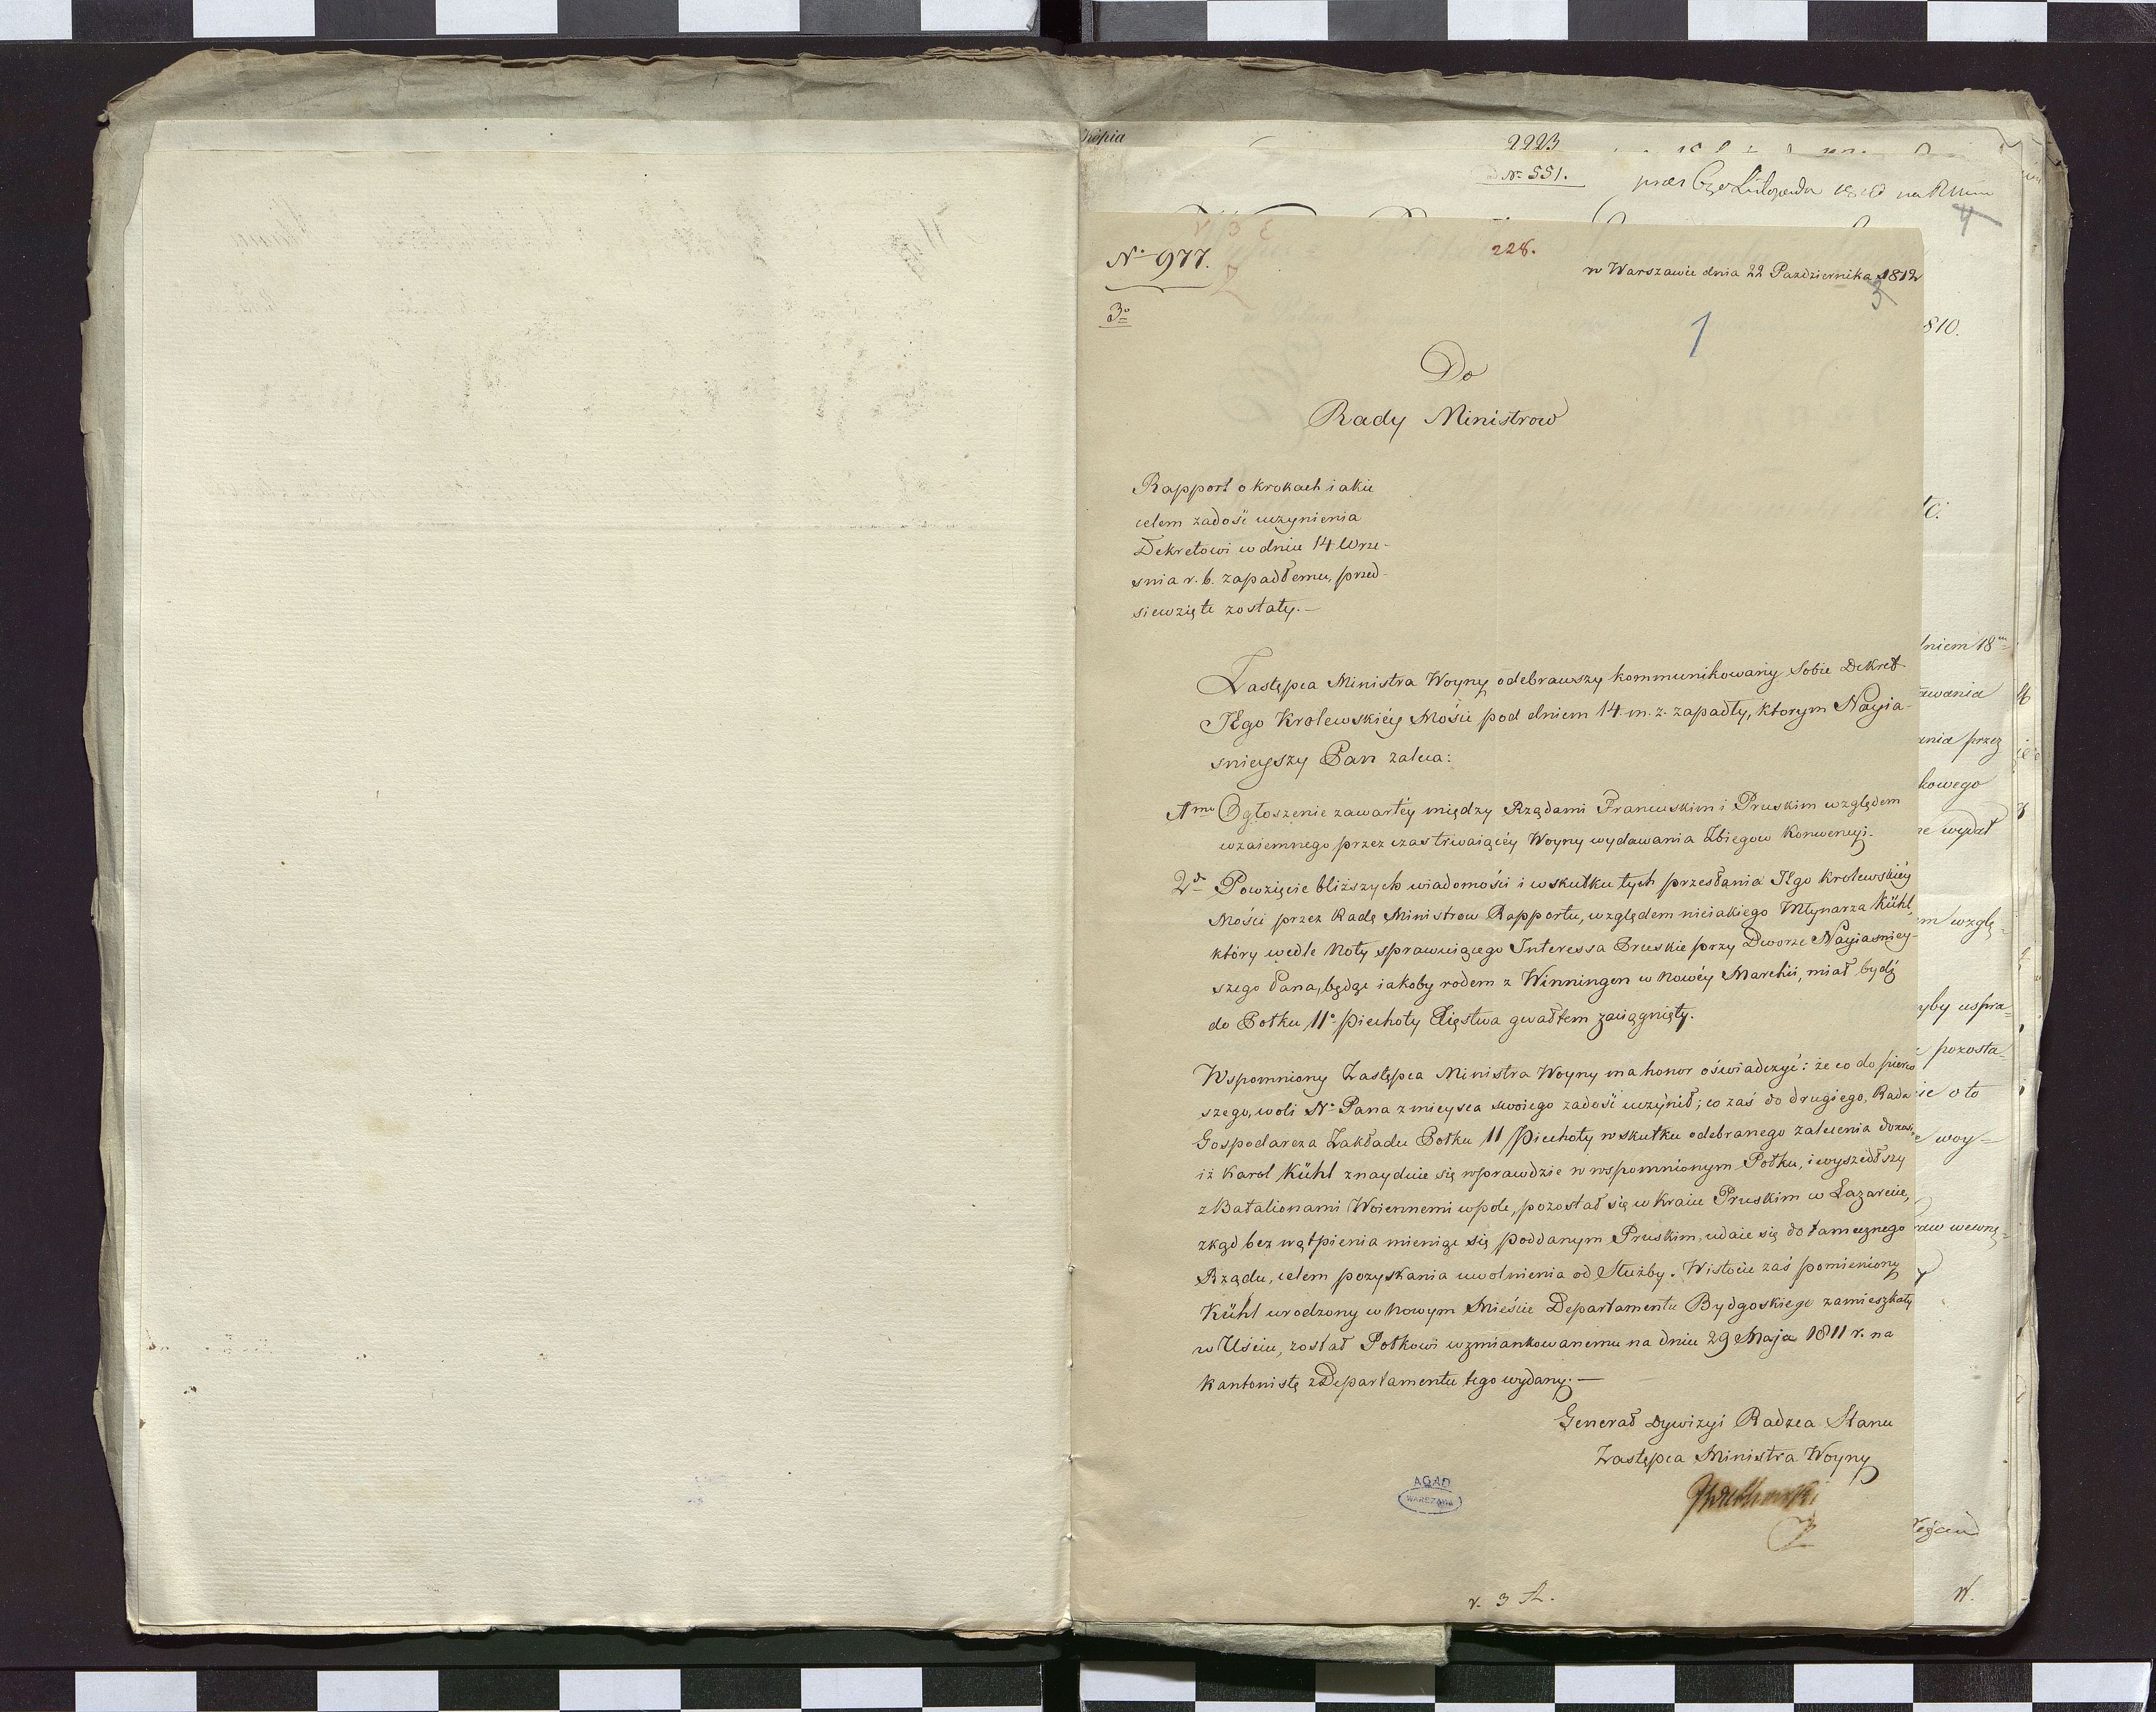 Kopia
2223
N. 551.
4
N. 977.
228.
w Warszawie dnia 22 Pazdziernika 1812
3
3o
1
810.
Do
Rady Ministrow
Rapport o krokach iakie
celem zadość uczynienia
Dekretowi w dniu 14 Wrze-
snia r. b. zapadłemu, przed-
siewzięte zostały. —
Zastępca Ministra Woyny odebrawszy kommunikowany Sobie Dekret
JEgo Krolewskiéy Mości pod dniem 14. m. z. zapadły, ktorym Nayia-
snieyszy Pan zaleca:
1mo Ogłoszenie zawartéy między Rządami Francuskim i Pruskim względem
wzaiemnego przez czas trwaiącéy Woyny wydawania Zbiegow Konwencyi.
2do Powzięcie bliższych wiadomości i w skutku tych przesłania JEgo Krolewskiéy
Mości przez Radę Ministrow Rapportu, względem nieiakiego Młynarza Kühl,
który wedle Noty sprawuiącego Interessa Pruskie przy Dworze Nayiasniey-
szego Pana, będąc iakoby rodem z Winningen w Nowéy Marchii, miał bydź
do Połku 11o Piechoty Xięstwa gwałtem zaciągnięty.
Wspomniony Zastępca Ministra Woyny ma honor oświadczyć: że co do pierw
szego, woli N. Pana z mieysca swoiego zadość uczynił; co zaś do drugiego, Rada
Gospodarcza Zakładu Połku 11 Piechoty w skutku odebranego zalecenia donosi,
iż Karol Kühl znayduie się wprawdzie w wspomnionym Połku, i wyszedłszy
z Batalionami Woiennemi w pole, pozostał się w Kraiu Pruskim w Lazarecie,
zkąd bez wątpienia mieniąc się poddanym Pruskim, udaie się do tamecznego
Rządu, celem pozyskania uwolnienia od Służby. W istocie zaś pomieniony
Kühl urodzony w Nowym Mieście Departamentu Bydgoskiego zamieszkały
w Uściu, został Połkowi wzmiankowanemu na dniu 29 Maja 1811 r. na
Kantonistę z Departamentu tego wydany. —
Generał Dywizyi Radzca Stanu
Zastępca Ministra Woyny
AGAD
WARSZAWA
r. 3 A.
dniem 18
awania
ania przez
kowego
wydał
wzglę-
yby uspra-
pozosta-
ie o to
woy-
raw wewnę-
N.